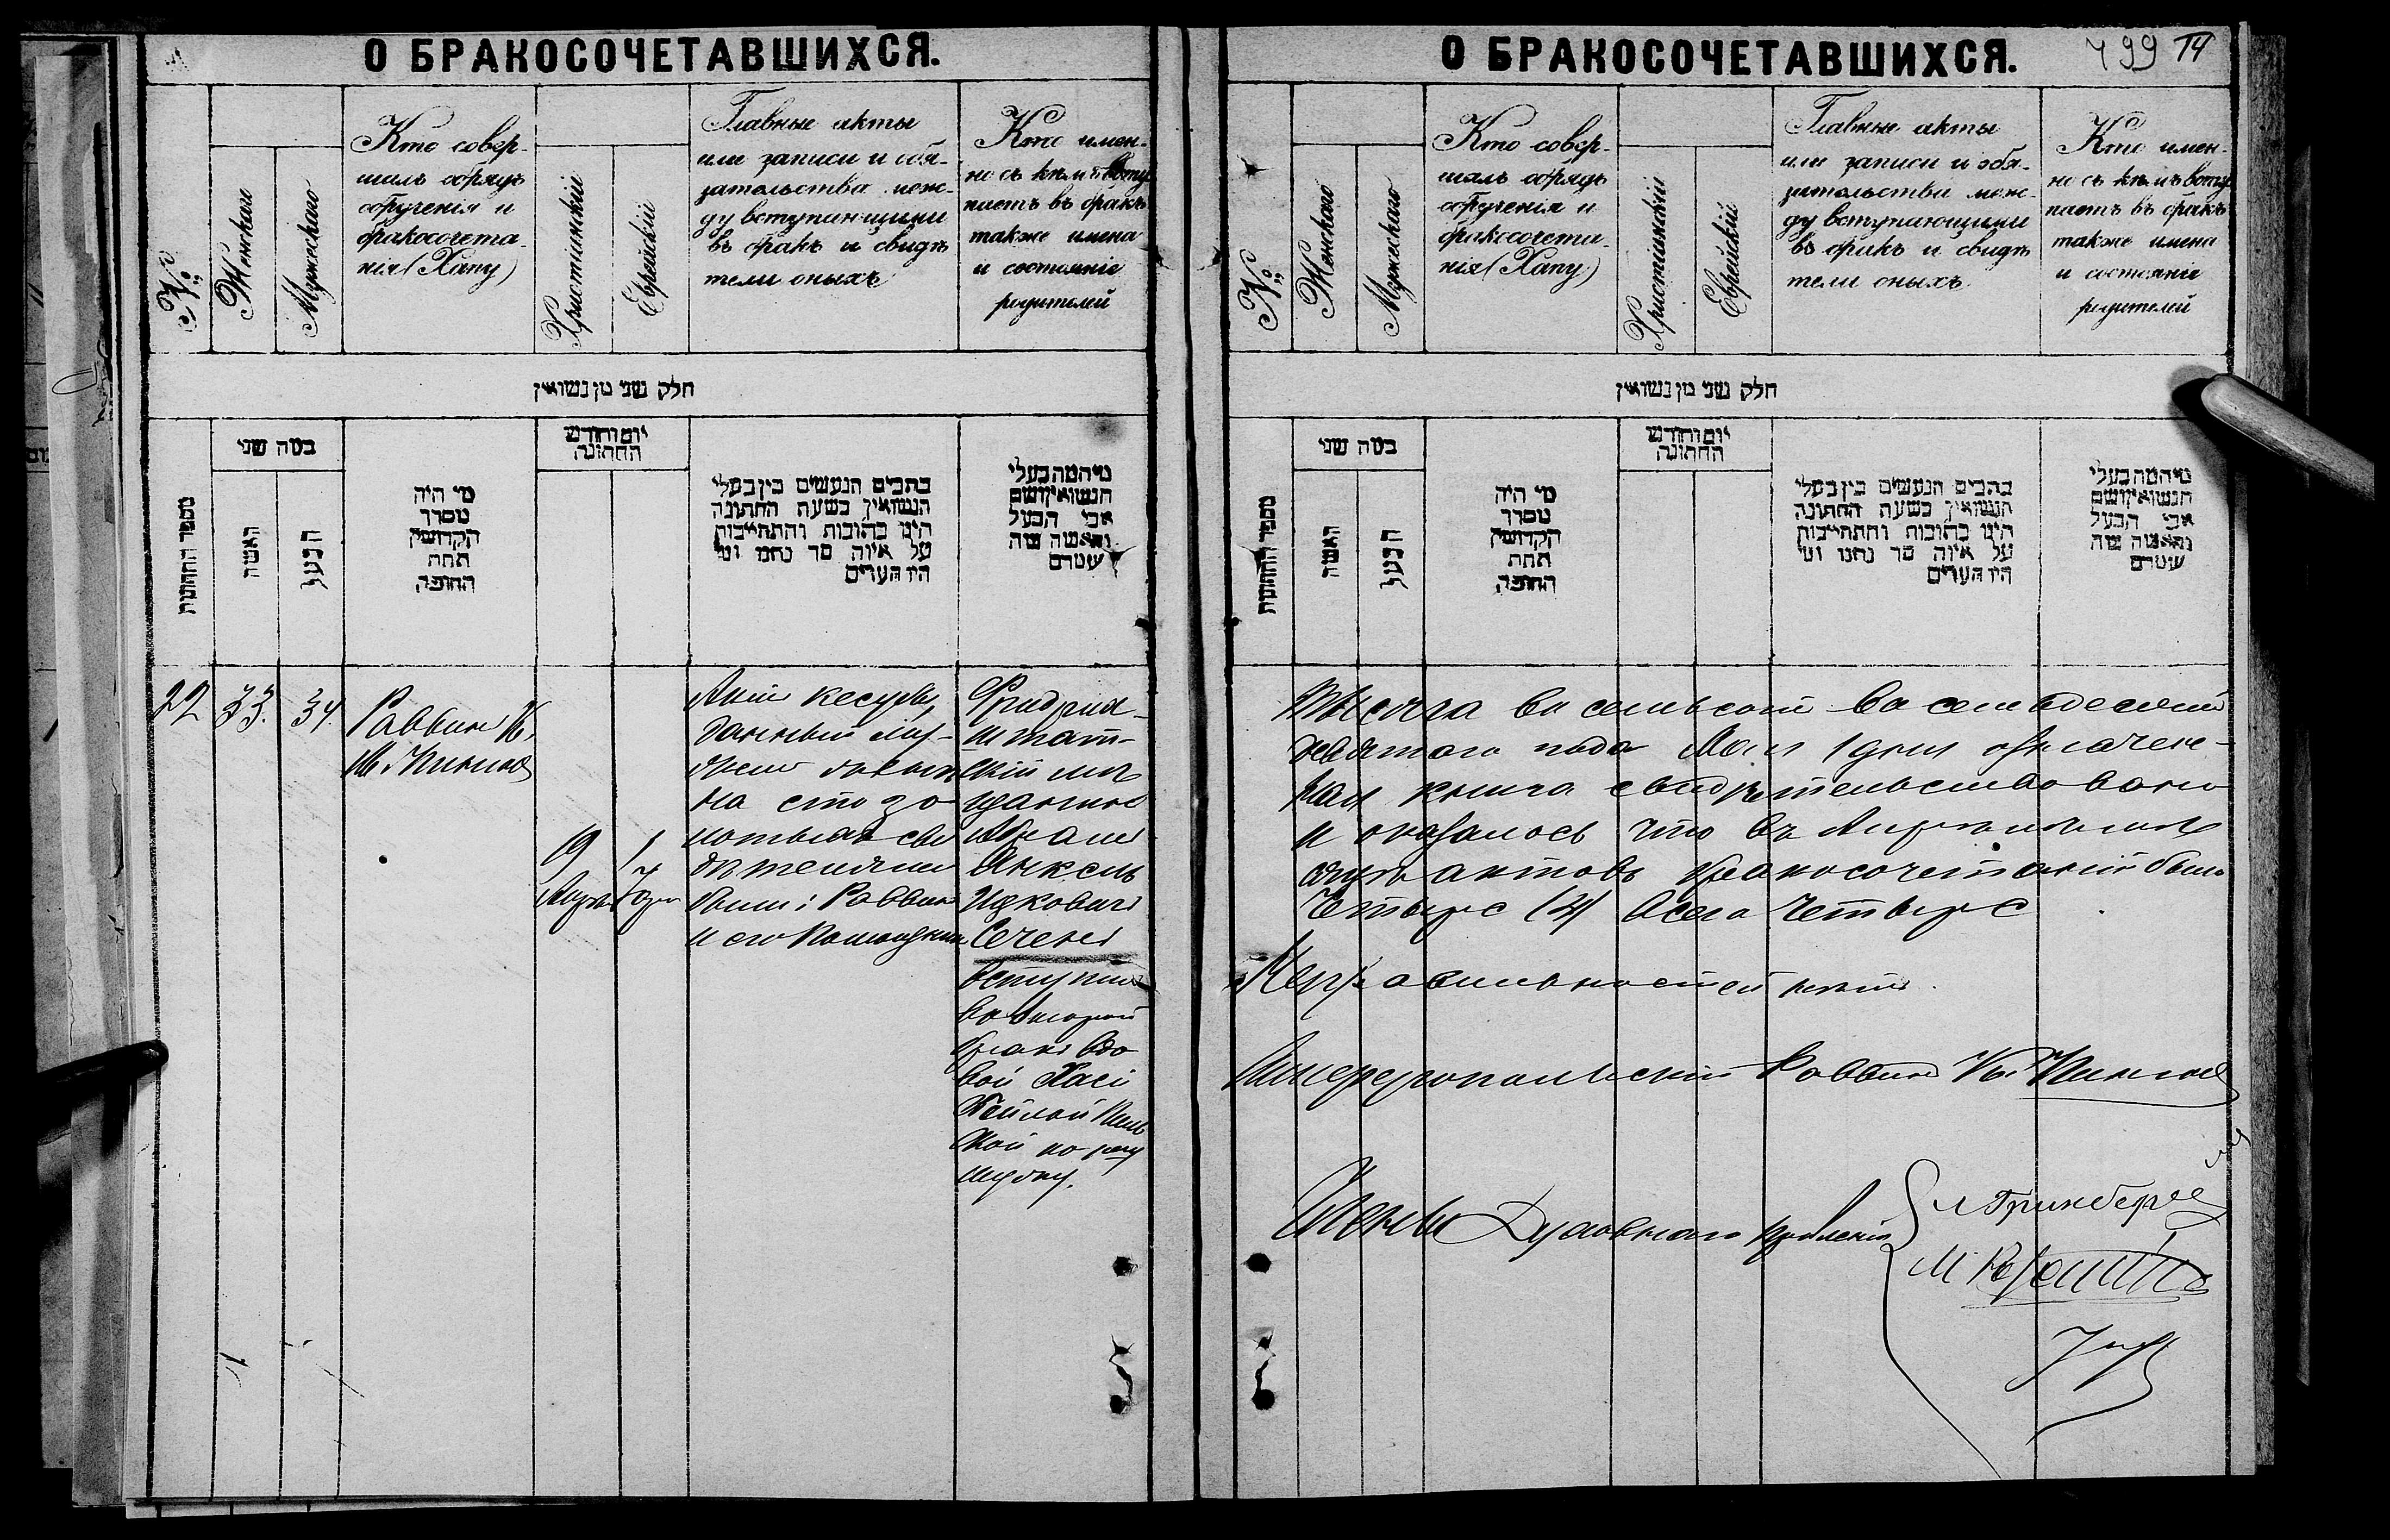 О БРАКОСОЧЕТАВШИХСЯ.
№
Женскаго
Мужескаго
Кто совер-
шалъ обрядъ
обрученія и
бракосочета-
нія (Хапу)
Христіанскій
Еврейскій
Главные акты
или записи и обя-
зательства меж-
ду вступающими
въ бракъ и свидѣ
тели оныхъ
Кто имен-
но съ кѣмъ всту
паетъ въ бракъ
также имена
и состояніе
родителей
חלק שני מן נשואין
מספר החתונות
כמה שני
האשה
הבעל
מי היה
מסדר
הקדושין
תחת
החופה
יום וחודש
החתונה
כתבים הנעשים בין בעלי
הנשואין בשעת החתונה
היינו כתובות והתחייבות
על איזה סך נתנו ומי
היו העדים
מי המה בעלי
הנשואין ושם
אבי הבעל
והאשה מה
שמם
22
33.
34.
Раввинъ
9
1
на сто зо
лотыхъ сви
дѣтелями
были: Раввинъ
и его Помощникъ
Фридрих-
штат-
скій мѣ
щанинъ
Абрамъ
Янкель
Ицковичъ
вступилъ
во второй
бракъ вдо
вой Хасі
Бейлой
О БРАКОСОЧЕТАВШИХСЯ.
499 14
№
Женскаго
Мужескаго
Кто совер-
шалъ обрядъ
обрученія и
бракосочета-
нія (Хапу)
Христіанскій
Еврейскій
Главные акты
или записи и обя-
зательства меж-
ду вступающими
въ бракъ и свидѣ
тели оныхъ
Кто имен-
но съ кѣмъ всту
паетъ въ бракъ
также имена
и состояніе
родителей
חלק שני מן נשואין
מספר החתונות
כמה שני
האשה
הבעל
מי היה
מסדר
הקדושין
תחת
החופה
יום וחודש
החתונה
כתבים הנעשים בין בעלי
הנשואין בשעת החתונה
היינו כתובות והתחייבות
על איזה סך נתנו ומי
היו העדים
מי המה בעלי
הנשואין ושם
אבי הבעל
והאשה מה
שמם
Тысяча восемьсотъ восемьдесятъ
девятаго года Мая 1 дня означен-
ная книга свидѣтельствована
и оказалось что въ Апрѣлѣ мѣ
сяцѣ актовъ бракосочетаній было
Четыре (4) Всего четыре
Неправильностей нѣтъ.
Симферопольскій Раввинъ
Члены Духовнаго Правленія
Гринбергъ